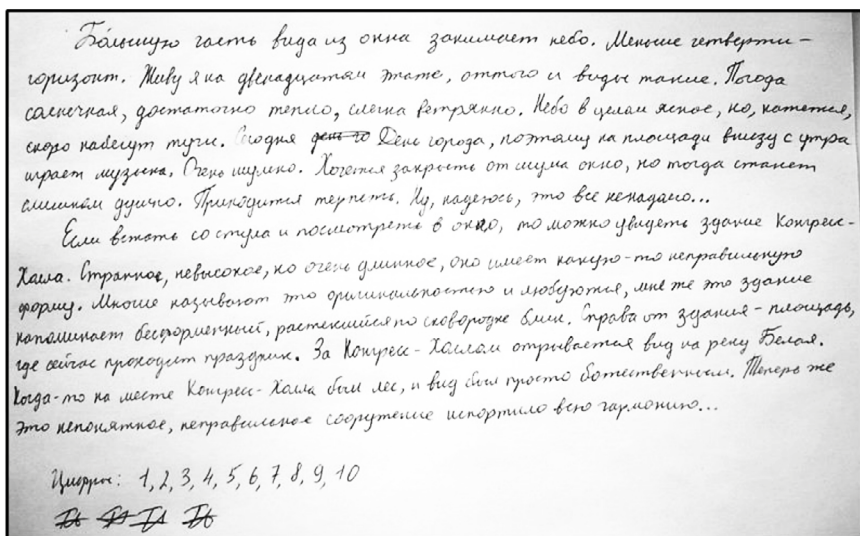 Бо́льшую часть вида из окна занимает небо. Меньше четверти –
горизонт. Живу я на двенадцатом этаже, оттого и виды такие. Погода
солнечная, достаточно тепло, слегка ветрянно. Небо в целом ясное, но, кажется,
скоро набегут тучи. Сегодня день го День города, поэтому на площади внизу с утра
играет музыка. Очень шумно. Хочется закрыть от шума окно, но тогда станет
слишком душно. Приходится терпеть. Ну, надеюсь, это всё ненадолго...
Если встать со стула и посмотреть в окно, то можно увидеть здание Конгресс-
Холла. Странное, невысокое, но очень длинное, оно имеет какую-то неправильную
форму. Многие называют это оригинальностью и любуются, мне же это здание
напоминает бесформенный, растёкшийся по сковородке блин. Справа от здания – площадь,
где сейчас проходит праздник. За Конгресс-Холлом открывается вид на реку Белая.
Когда-то на месте Конгресс-Холла был лес, и вид был просто божественным. Теперь же
это непонятное, неправильное сооружение испортило всю гармонию...
Цифры: 1, 2, 3, 4, 5, 6, 7, 8, 9, 10